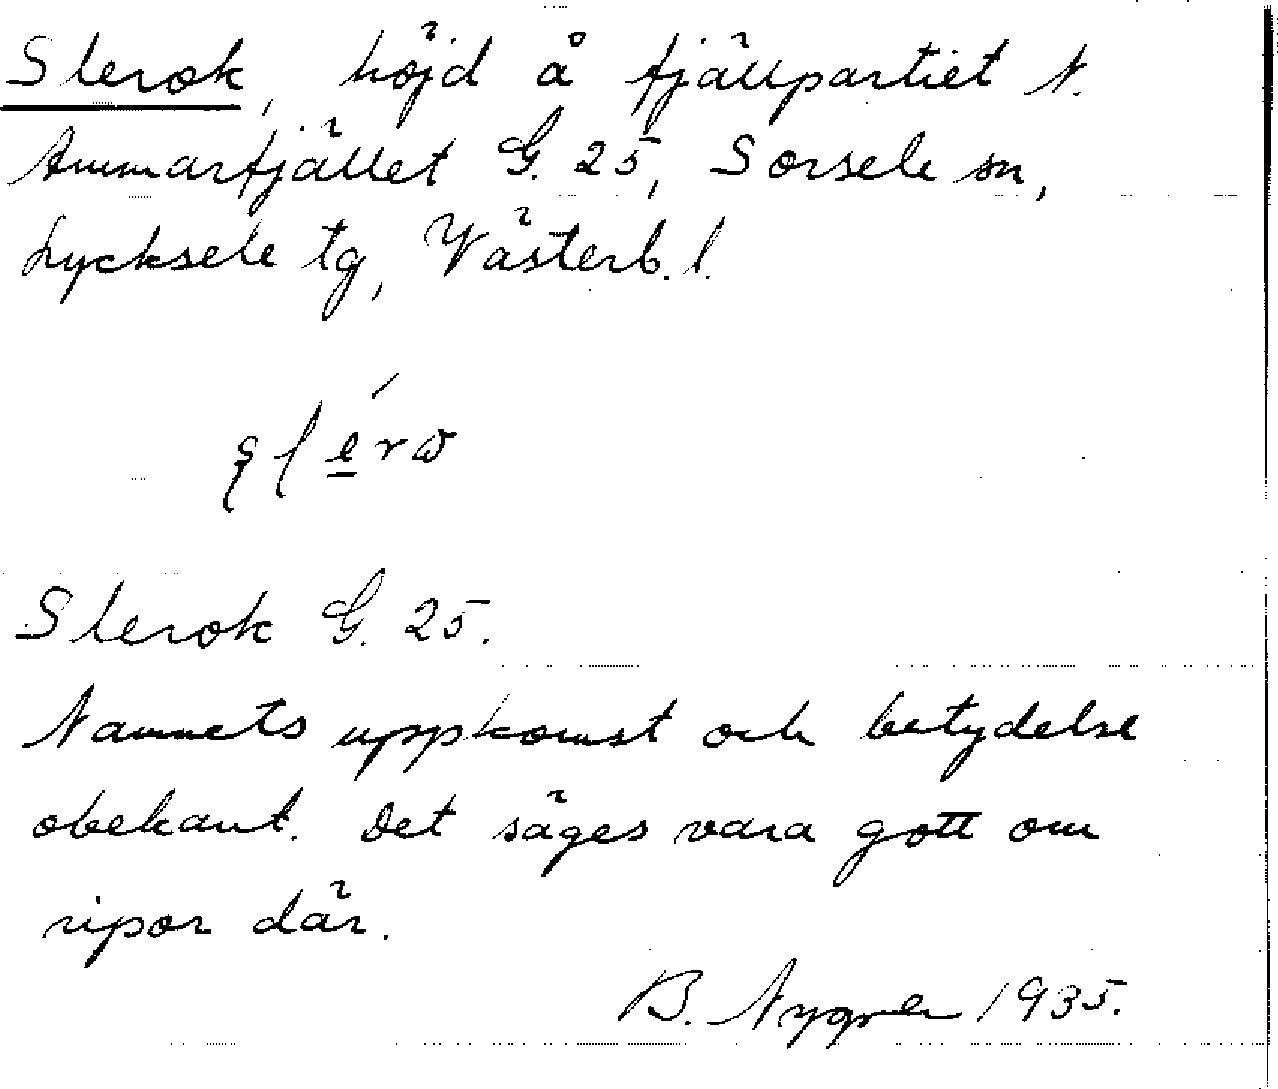 Slerok, höjd å fjällpartiet N.
Ammarfjället G. 25, Sorsele sn,
Lycksele tg, Västerb. l.
Slerok G. 25.
Namnets uppkomst och betydelse
obekant. Det säges vara gott om
ripor där.
B. Nygren 1935.